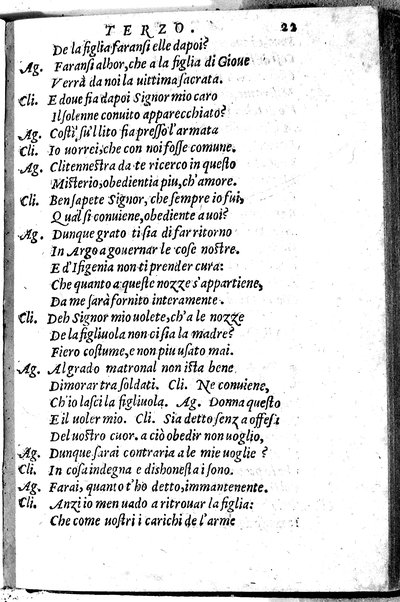 TERZO. 22
De la figlia faransi elle dapoi?
Ag. Faransi alhor, che a la figlia di Gioue
Verrà da noi la uittima sacrata.
Cli. E doue fia dapoi Signor mio caro
Il solenne conuito apparecchiato?
Ag. Costì su'l lito fia presso l'armata
Cli. Io uorrei, che con noi fosse comune.
Ag. Clitennestra da te ricerco in questo
Misterio, obedientia piu, ch'amore.
Cli. Ben sapete Signor, che sempre io fui,
Qual si conuiene, obediente a uoi?
Ag. Dunque grato ti sia di far ritorno
In Argo a gouernar le cose nostre.
E d'Ifigenia non ti prender cura:
Che quanto a queste nozze s'appartiene,
Da me sarà fornito interamente.
Cli. Deh Signor mio uolete, ch'a le nozze
De la figliuola non ci sia la madre?
Fiero costume, e non piu usato mai.
Ag. Al grado matronal non ista bene
Dimorar tra soldati. Cli. Ne conuiene,
Ch'io lasci la figliuola. Ag. Donna questo
E il uoler mio. Cli. Sia detto senz'a offesi
Del uostro cuor. a ciò obedir non uoglio,
Ag. Dunque sarai contraria a le mie uoglie?
Cli. In cosa indegna e dishonesta i sono.
Ag. Farai, quanto t'ho detto, immantenente.
Cli. Anzi io men uado a ritrouar la figlia:
Che come uostri i carichi de l'arme